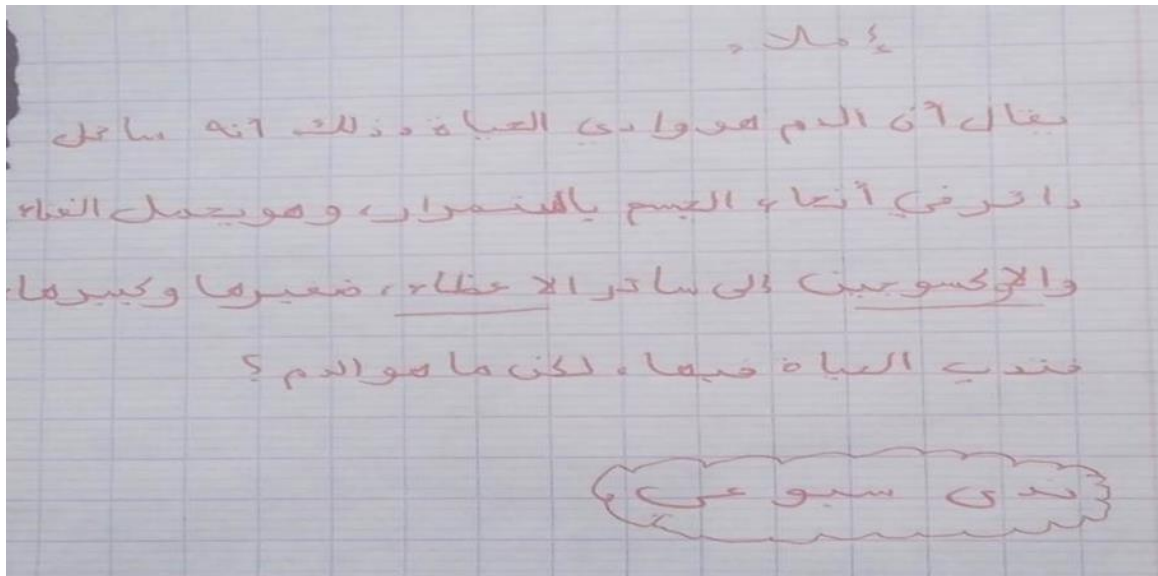 إملاء
يقال أن الدم هو وادي الحياة وذلك أنه سائل
دائر في أنحاء الجسم باستمرار، وهو يحمل الغذاء
والأوكسوجين إلى سائر الاعظاء، ضغيرها وكبيرها،
فتدب الحياة فيها، لكن ما هو الدم؟
ندى سبوعي